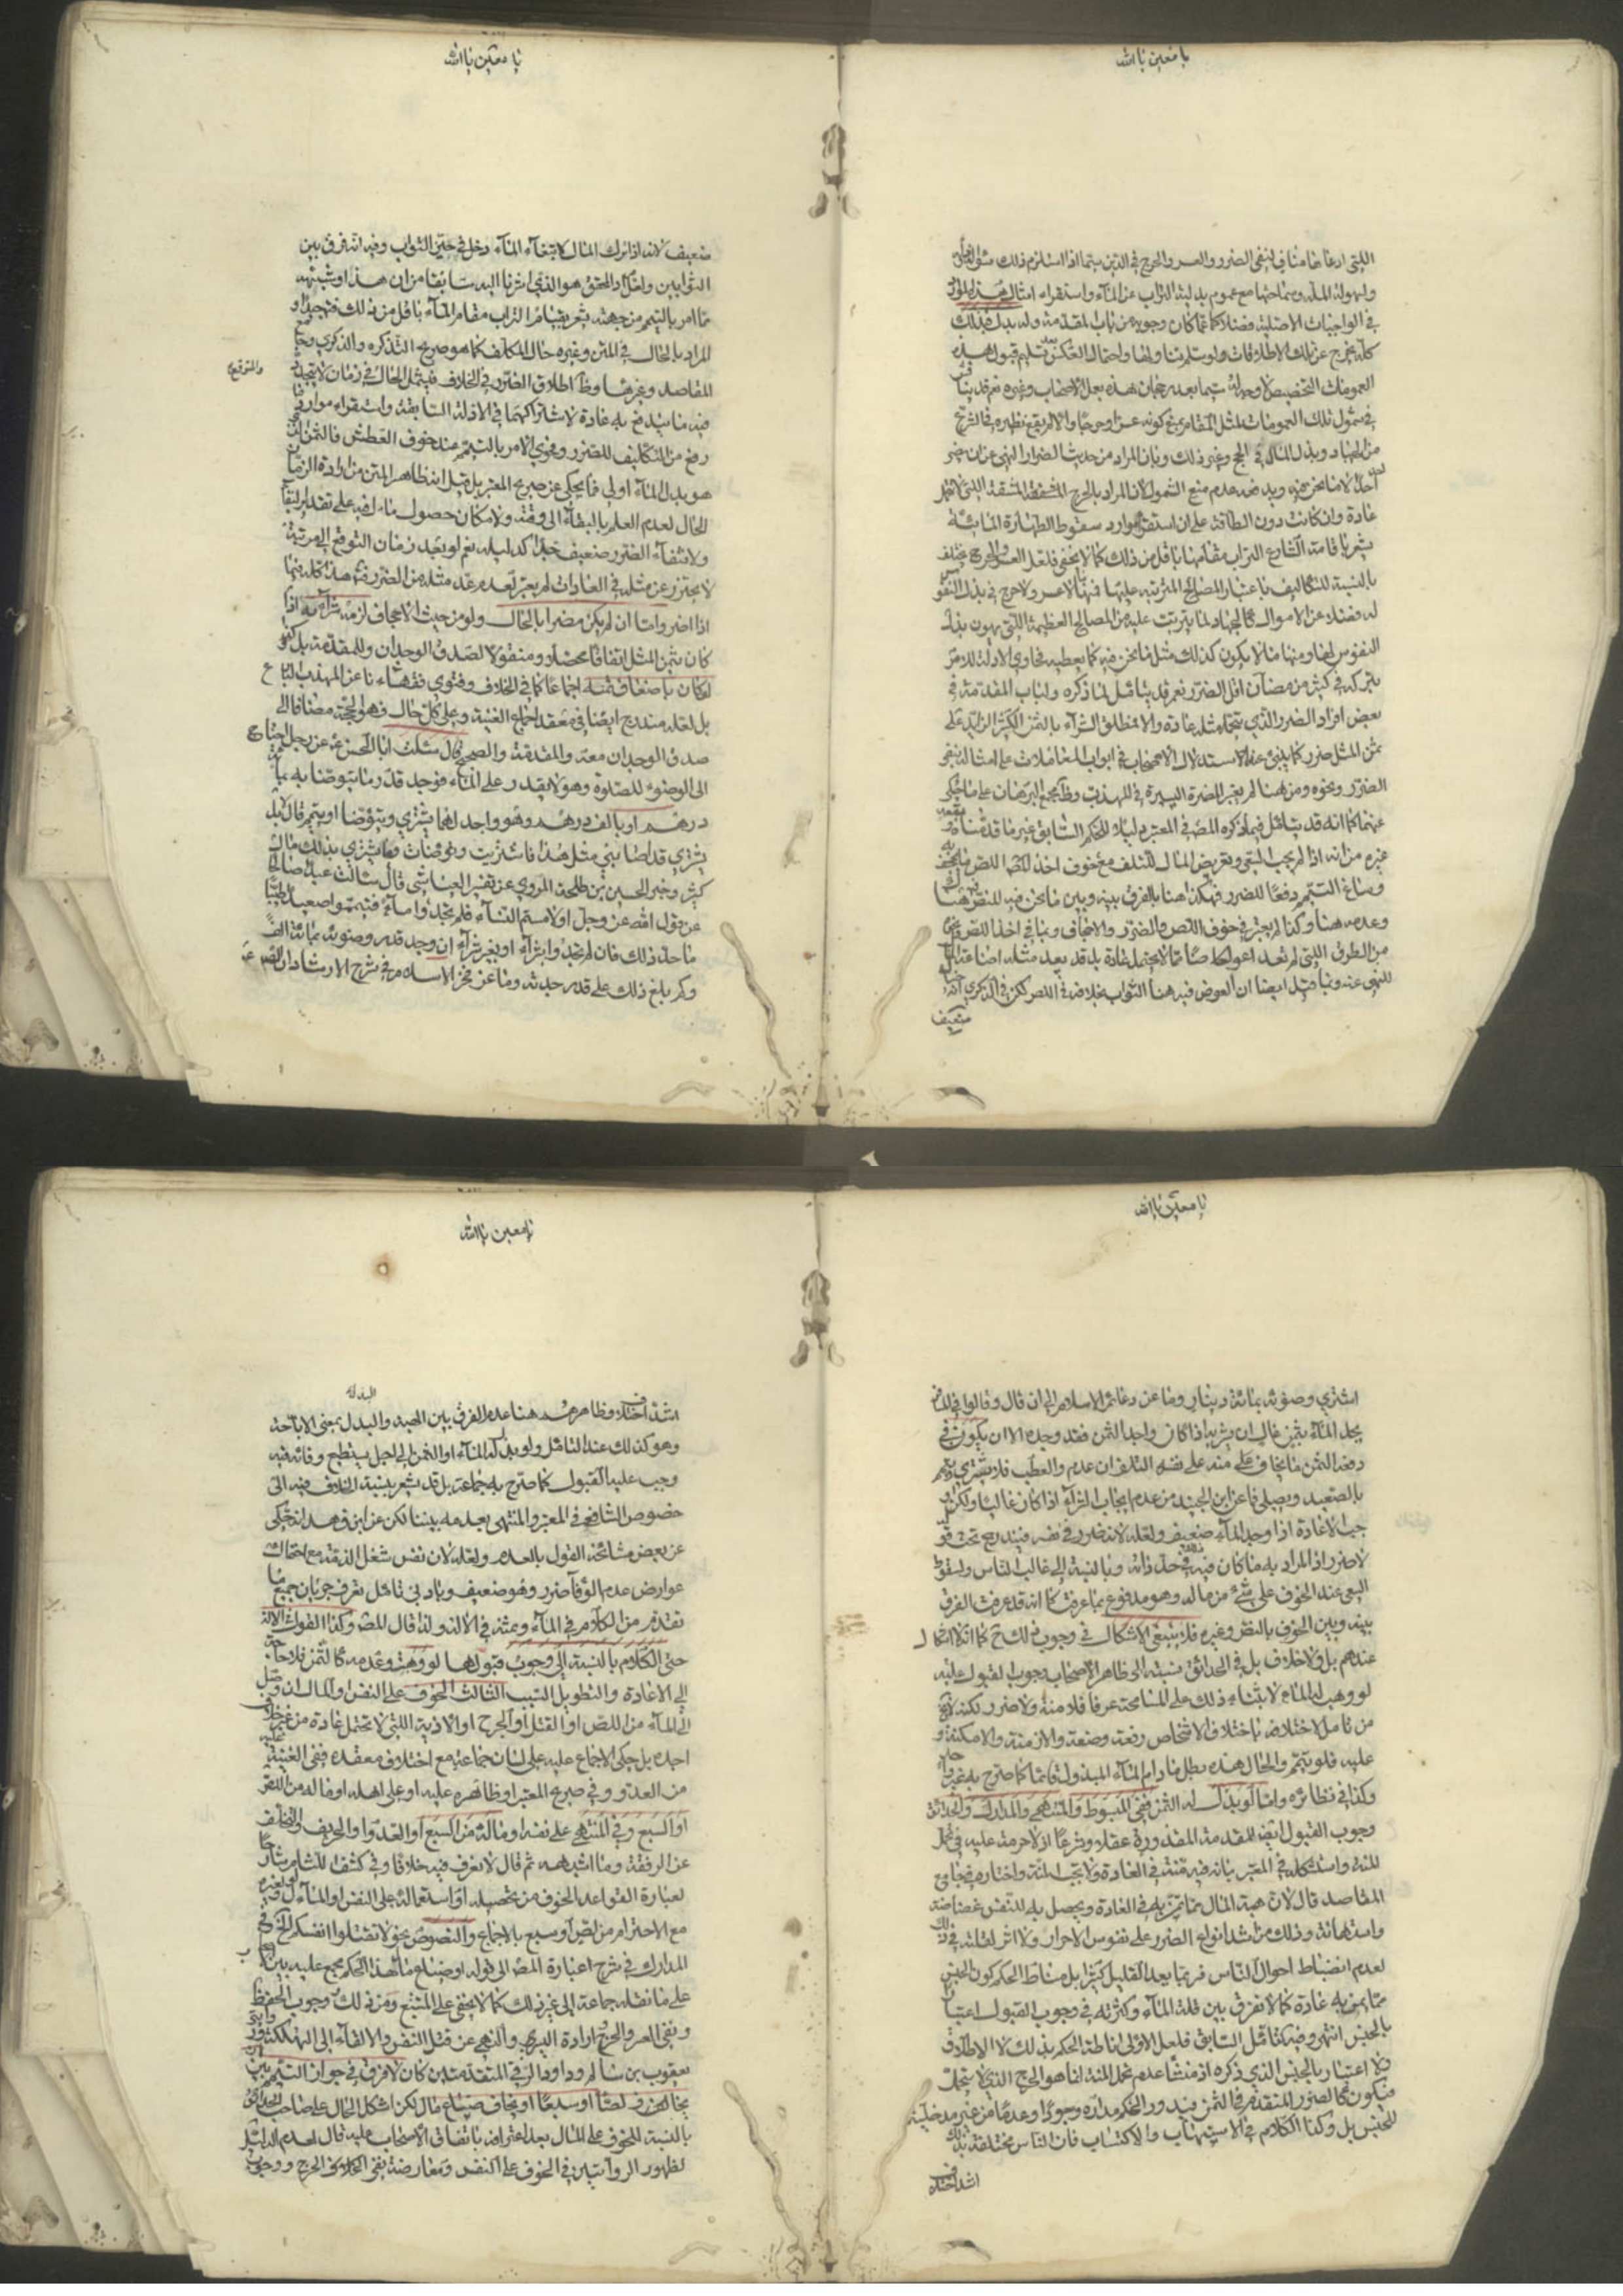 يا معين يا الله
اللتي ادعاها منافي لنفي الضرر والعسر والحرج في الدين سيما اذا استلزم ذلك سئوال
ولسهولة الملة وسماحتها مع عموم بدلية التراب عن الماء واستقراء امثال هذه الموارد
في الواجبات الاصلية فضلا عما كان وجوبه من باب المقدمة وله بدل فبذلك
كله يخرج عن تلك الاطلاقات ولو سلم تناولها واحتمال العكس بعد تسليم قبول هذه
العمومات التخصيص لا وجه له سيما بعد رجحان هذه بعمل الاصحاب وغيره نعم قد يناقش
في شمول تلك العمومات لمثل المقام بمنع كونه عسرا وحرجا والا لم يقع نظيره في الشرع
من الجهاد وبذل المال في الحج وغير ذلك وبان المراد من حديث الضرار النهي عن ان يضر
احد لا ما نحن فيه ويدفعه عدم منع الشمول لان المراد بالحرج المشقة اللتي لا تتحمل
عادة وان كانت دون الطاقة على ان استقراء موارد سقوط الطهارة المائية
يشعر باقامة الشارع التراب مقامها باقل من ذلك كما لا يخفى فلعل العسر والحرج مختلف
بالنسبة للتكاليف باعتبار المصالح المترتبة عليها فمنها لا عسر ولا حرج في بذل النفوس
له فضلا عن الاموال كالجهاد لما يترتب عليه من المصالح العظيمة اللتي يهون بذل
النفوس لها ومنها ما لا يكون كذلك مثل ما نحن فيه كما يعطيه فحاوي الادلة للامر
بتركه في كثير من مضان اقل الضرر نعم قد يتامل لما ذكره ولباب المقدمة في
بعض افراد الضرر والذي يتحمل مثله عادة والا فمطلق الشراء بالثمن الكثير الزايد على
ثمن المثل ضرر كما ينبئ عنه استدلال الاصحاب في ابواب المعاملات على امثاله بنفي
الضرر ونحوه ومن هنا لم يعتبر المضرة اليسيرة في المهذب وظ مجمع البرهان على ما حكي
عنهما كما انه قد يتامل فيما ذكره المص في المعتبر دليلا للحكم السابق غير ما قدمنا وتبعه
غيره من انه اذا لم يجب السعي وتعريض المال للتلف مع خوف اخذ اللص ما يجحف به
وساغ التيمم دفعا للضرر فهكذا هنا بالفرق بينه وبين ما نحن فيه للنص هناك
وعدمه هنا وكذا لم يعتبر في خوف اللص والضرر والاجحاف وبما في اخذ اللص وغيره
من الطرق اللتي لم تعد اعواضا مما لا يحتمل عادة بل قد يعد مثله اضاعة للمال
للنهي عنه وبما قيل ايضا ان العوض فيه هنا الثواب بخلافه في اللص لكن في الذكرى انه خيال
ضعيف
يا معين يا الله
ضعيف لانه اذا ترك المال لابتغاء الماء دخل في حيز الثواب وفيه انه فرق بين
الثوابين ولعل المحقق هو الذي اشرنا اليه سابقا من ان هذا او شبهه
مما امر بالتيمم من جهته بتعريض اقام التراب مقام الماء باقل من ذلك فتجيدا و
المراد بالحال في المتن وغيره حال المكلف كما هو صريح التذكرة والذكرى وجامع
المقاصد وغيرها وظ اطلاق الضرر في الخلاف فيشمل الحال في زمان لا يتجدد
والمتوقع
فيه ما يندفع به عادة لاشتراكهما في الادلة السابقة واستقراء موارد
رفع من التكاليف للضرر وفحوى الامر بالتيمم عند خوف العطش فالثمن الذي
هو بدل الماء اولى فما يحكى عن صريح المعتبر بل قيل انه ظاهر المتن من ارادة الزمان
الحال لعدم العلم بالبقاء الى وقته ولامكان حصول مال فيه على تقدير البقاء
ولانتفاء الضرر ضعيف جدا كدليله نعم لو بعد زمان التوقع الى مرتبة
لا يحترز عن مثله في العادات لم يعتبر لعدم عد مثله من الضرر هذا كله فيما
اذا اضر واما ان لم يكن مضرا بالحال ولو من حيث الاجحاف لزمه شراؤه به اذا
كان بثمن المثل اتفاقا محصلا ومنقولا لصدق الوجدان وللمقدمة بل كذا
لو كان باضعاف ثمنه اجماعا كما في الخلاف وفتوى فقهاءنا عن المهذب البارع
بل لعله مندرج ايضا في معقد اجماع الغنية وعلى كل حال فهو الحجة مضافا الى
صدق الوجدان معه والمقدمة والصحيح قال سئلت ابا الحسن ع عن رجل احتاج
الى الوضوء للصلوة وهو لا يقدر على الماء فوجد قدر ما يتوضا به بمائة
درهم او بالف درهم وهو واجد لها يشتري ويتوضا او يتيمم قال لا بل
يشتري قد اصابني مثل هذا فاشتريت وتوضات وما يشتري بذلك مال
كثير وخبر الحسين بن طلحة المروي عن تفسير العياشي قال سالت عبدا صالحا
عن قول الله عز وجل او لامستم النساء فلم تجدوا ماء فتيمموا صعيدا طيبا
ما حد ذلك فان لم تجدوا بشراء او بغير شراء ان وجد قدر وضوئه بمائة الف
وكم بلغ ذلك على قدر جدته وما عن فخر الاسلام في شرح الارشاد ان الص ع
يا معين يا الله
اشترى وضوئه بمائة دينار وما عن دعائم الاسلام الى ان قال وقالوا في المسافر
يجد الماء بثمن غال ان يشتريه اذا كان واجدا لثمنه فقد وجده الا ان يكون في
دفعه الثمن ما يخاف على منه على نفسه التلف ان عدمه والعطب فلا يشتري ويتيمم
بالصعيد ويصلي فما عن ابن الجنيد من عدم ايجاب الشراء اذا كان غاليا ولكن
جب الاعادة اذا وجد الماء ضعيف ولعله لانه ضرر في نفسه فيندرج تحت قوله
لا ضرر اذ المراد به ما كان فيه في حد ذاته وبالنسبة الى غالب الناس ولسقوط
السعي عند الخوف على شيء من ماله وهو مدفوع بما عرفت كما انه قد عرفت الفرق
بينه وبين الخوف بالنص وغيره فلا ينبغي الاشكال في وجوب ذلك ح كما انه لا اشكال
عندهم بل ولا خلاف بل في الحدائق نسبته الى ظاهر الاصحاب وجوب القبول عليه
لو وهب له الماء لابتناء ذلك على المسامحة عرفا فلا منة ولا ضرر لكنه لا يخ
من تامل لاختلافه باختلاف الاشخاص رفعة وضعة والازمنة والامكنة و
عليه فلو تيمم والحال هذه بطل ما دام الماء المبذول قائما كما صرح به غير واحد
وكذا في نظائره واما لو بذل له الثمن ففي المبسوط والمنتهى والمدارك والحدائق
وجوب القبول ايض للمقدمة المقدورة عقلا وشرعا اذ لا حرمة عليه في تحمل
المنة واستشكله في المعتبر بانه فيه منة في العادة ولا تجب المنة واختاره في جامع
المقاصد قال لان هبة المال مما يمن به في العادة ويحصل به للنفس غضاضة
واستهانة وذلك من اشد انواع الضرر على نفوس الاحرار ولا اثر لقلته في ذلك
لعدم انضباط احوال الناس فربما يعد القليل كثيرا بل مناط الحكم كون الجنس
مما يمن به عادة كما لا نفرق بين قلة الماء وكثرته في وجوب القبول اعتبارا
بالجنس انتهى وفيه كتامل السابق فلعل الاولى اناطة الحكم بذلك لا الاطلاق
ولا اعتبار بالجنس الذي ذكره اذ منشا عدم تحمل المنة انما هو الحرج الذي لا يتحمل
فيكون كالصور المتقدم في الثمن فيدور الحكم مداره وجودا وعدما من غير مدخلية
للجنس بل وكذا الكلام في الاستيهاب والاكتساب فان الناس مختلفة بذلك
اشد اختلاف
يا معين يا الله
اشد اختلاف وظاهرهم هنا عدم الفرق بين الهبة والبدل بمعنى الاباحة
وهو كذلك عند التامل ولو بذل له الماء او الثمن الى اجل يستطيع وفائه فيه
وجب عليه القبول كما صرح به جماعة بل قد يشعر بنسبة الخلاف فيه الى
خصوص الشافعي في المعتبر والمنتهى بعدمه بيننا لكن عن ابن فهد انه حكى
عن بعض مشائخه القول بالعدم ولعله لان نفس شغل الذمة مع احتمال
عوارض عدم الوفا ضرر وهو ضعيف وبادنى تامل تعرف جريان جميع ما
تقدم من الكلام في الماء وثمنه في الالة ولذا قال المص وكذا القول في الالة
حتى الكلام بالنسبة الى وجوب قبولها لو وهبت وعدمه كالثمن فلا حاجة
الى الاعادة والتطويل السبب الثالث الخوف على النفس والمال ان وصل
الى الماء من اللص او القتل او الجرح او الاذية اللتي لا تحتمل عادة من غير خلاف
اجده بل حكي الاجماع عليه على لسان جماعة مع اختلاف معقده ففي الغنية
من العدو وفي صريح المعتبر او ظاهره عليه او على اهله او ماله من اللص
او السبع وفي المنتهى على نفسه او ماله من السبع او العدو او الحريق او التخلف
عن الرفقة وما اشبهه ثم قال لا نعرف فيه خلافا وفي كشف اللثام شارحا
لعبارة القواعد الخوف من تحصيله او استعماله على النفس او المال له او لغيره
مع الاحترام من لص او سبع بالاجماع والنصوص نحو لا تقتلوا انفسكم الخ وفي
المدارك في شرح عبارة المص الى قوله او ضياع مال هذا الحكم مجمع عليه بين الاصحاب
على ما نقله جماعة الى غير ذلك كما لا يخفى على المتتبع ومن ذلك وجوب الحفظ
ونفي العسر والحرج وارادة اليسر والنهي عن قتل النفس والالقاء الى التهلكة وروايتي
يعقوب بن سالم وداود الرقي المتقدمتين كان لا فرق في جواز التيمم بين
يخاف لصا او سبعا او يخاف ضياع مال لكن اشكل الحال على صاحب الحدائق
بالنسبة للخوف على المال بعد اعترافه باتفاق الاصحاب عليه قال لعدم الدليل
لظهور الروايتين في الخوف على النفس ومعارضة نفي الحرج ووجوب